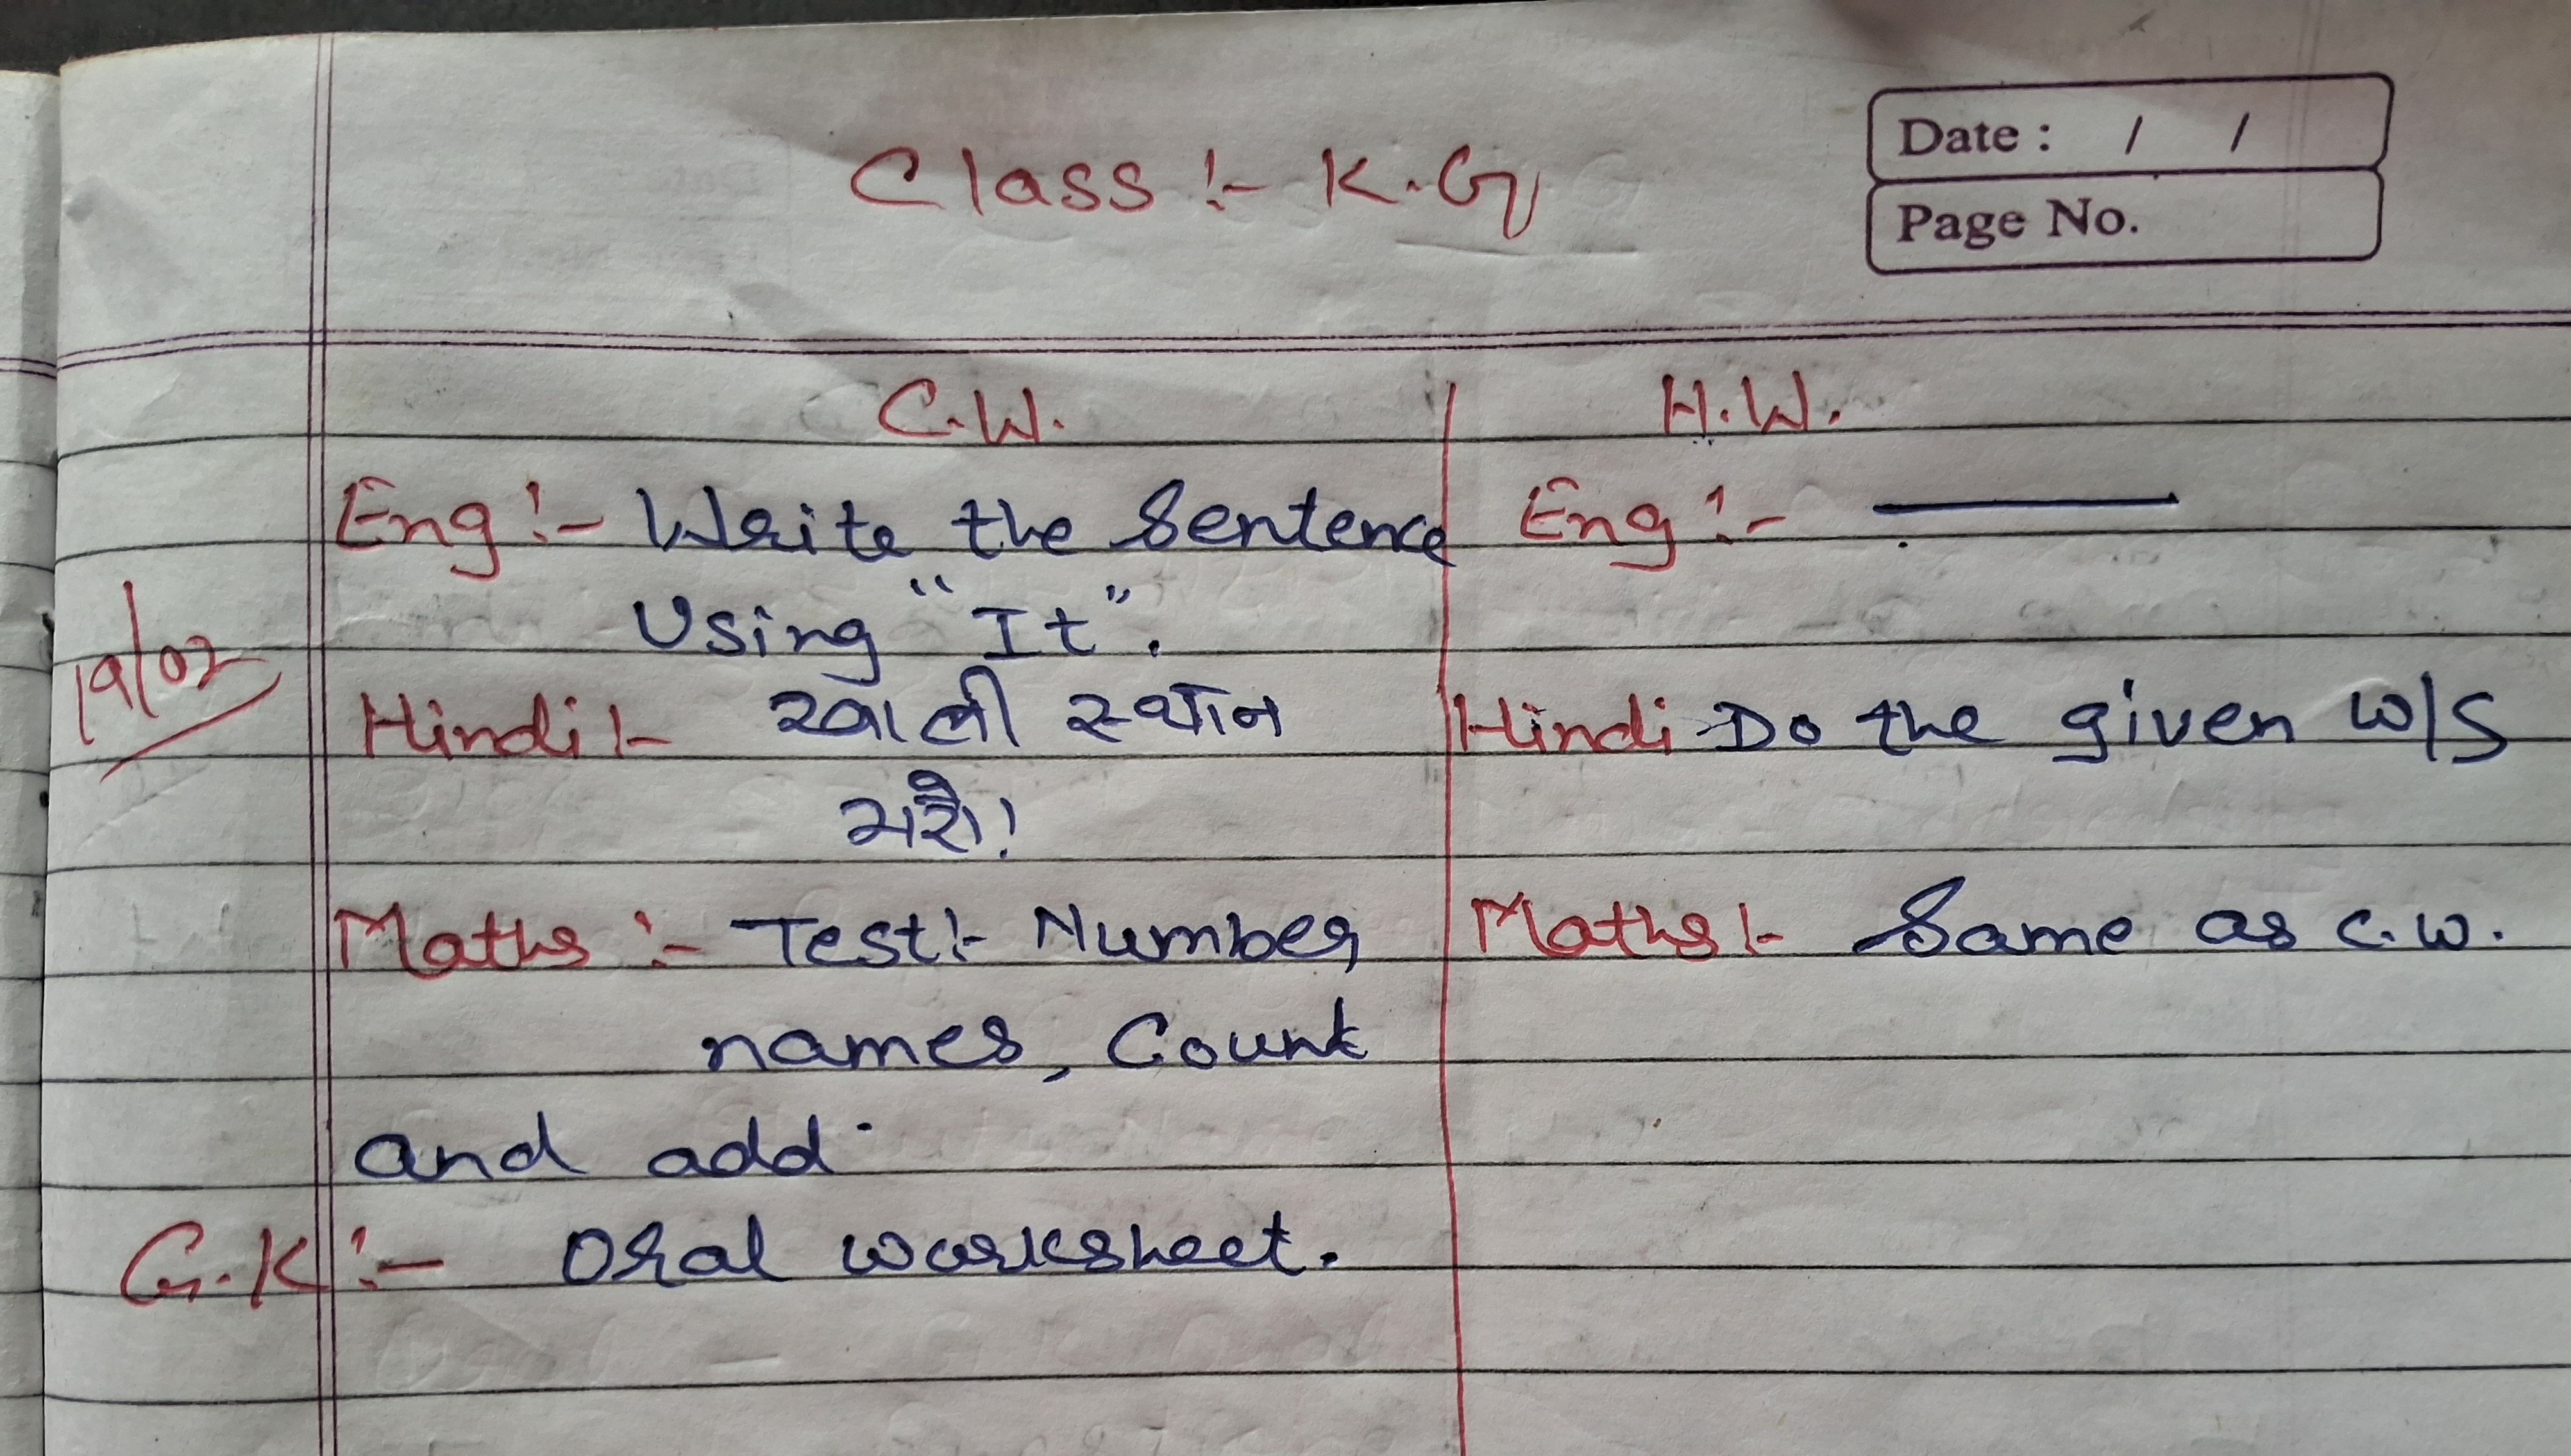 Date : / /
Page No.
Class :- K.G
C.W.
H.W.
Eng :- Write the Sentence
Using "It".
Eng :- ———
19/02
Hindi :- खाली स्थान
भरो।
Hindi Do the given W/S
Maths :- Test :- Number
names, Count
and add.
Maths :- Same as C.W.
G.K :- Oral worksheet.